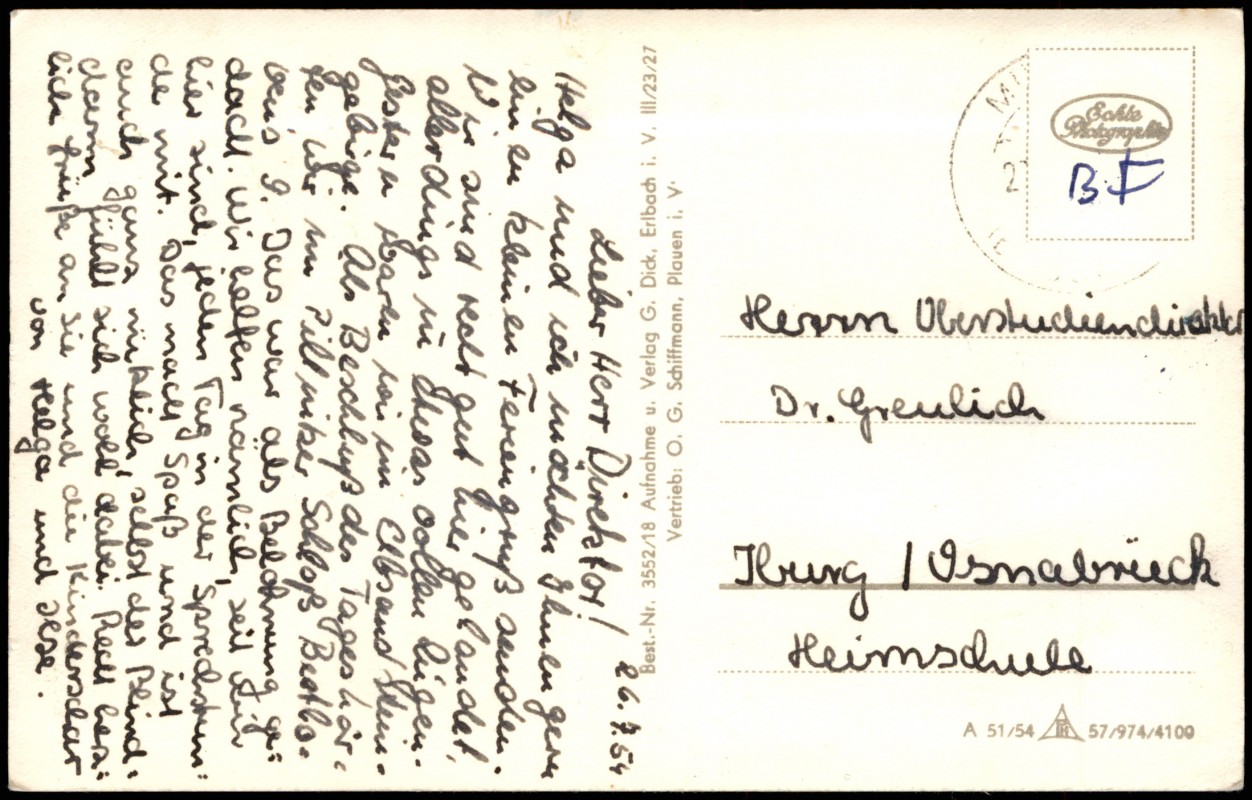 26.7.54
Lieber Herr Direktor!
Helga und ich möchten Ihnen gern
einen kleinen Feriengruß senden.
Wir sind recht gut hier gelandet,
allerdings in etwas vollen Zügen.
Gestern waren wir im Elbsandstein-
gebirge. Als Beschluß des Tages hör-
ten wir im Pillnitzer Schloß Beetho-
vens 9. Das war als Belohnung ge-
dacht. Wir helfen nämlich, seit wir
hier sind, jeden Tag in der Sprechstun-
de mit. Das macht Spaß und ist
auch ganz nützlich, selbst der Blind-
darm fühlt sich wohl dabei. Recht herz-
liche Grüße an Sie und die Kinderschar
von Helga und
Best.-Nr. 3552/18 Aufnahme u. Verlag G. Dick, Erlbach i. V. III/23/27
Vertrieb: O. G. Schiffmann, Plauen i. V.
Echte
Photographie
Herrn Oberstudiendirektor
Dr. Greulich
Iburg / Osnabrück
Heimschule
A 51/54 57/974/4100